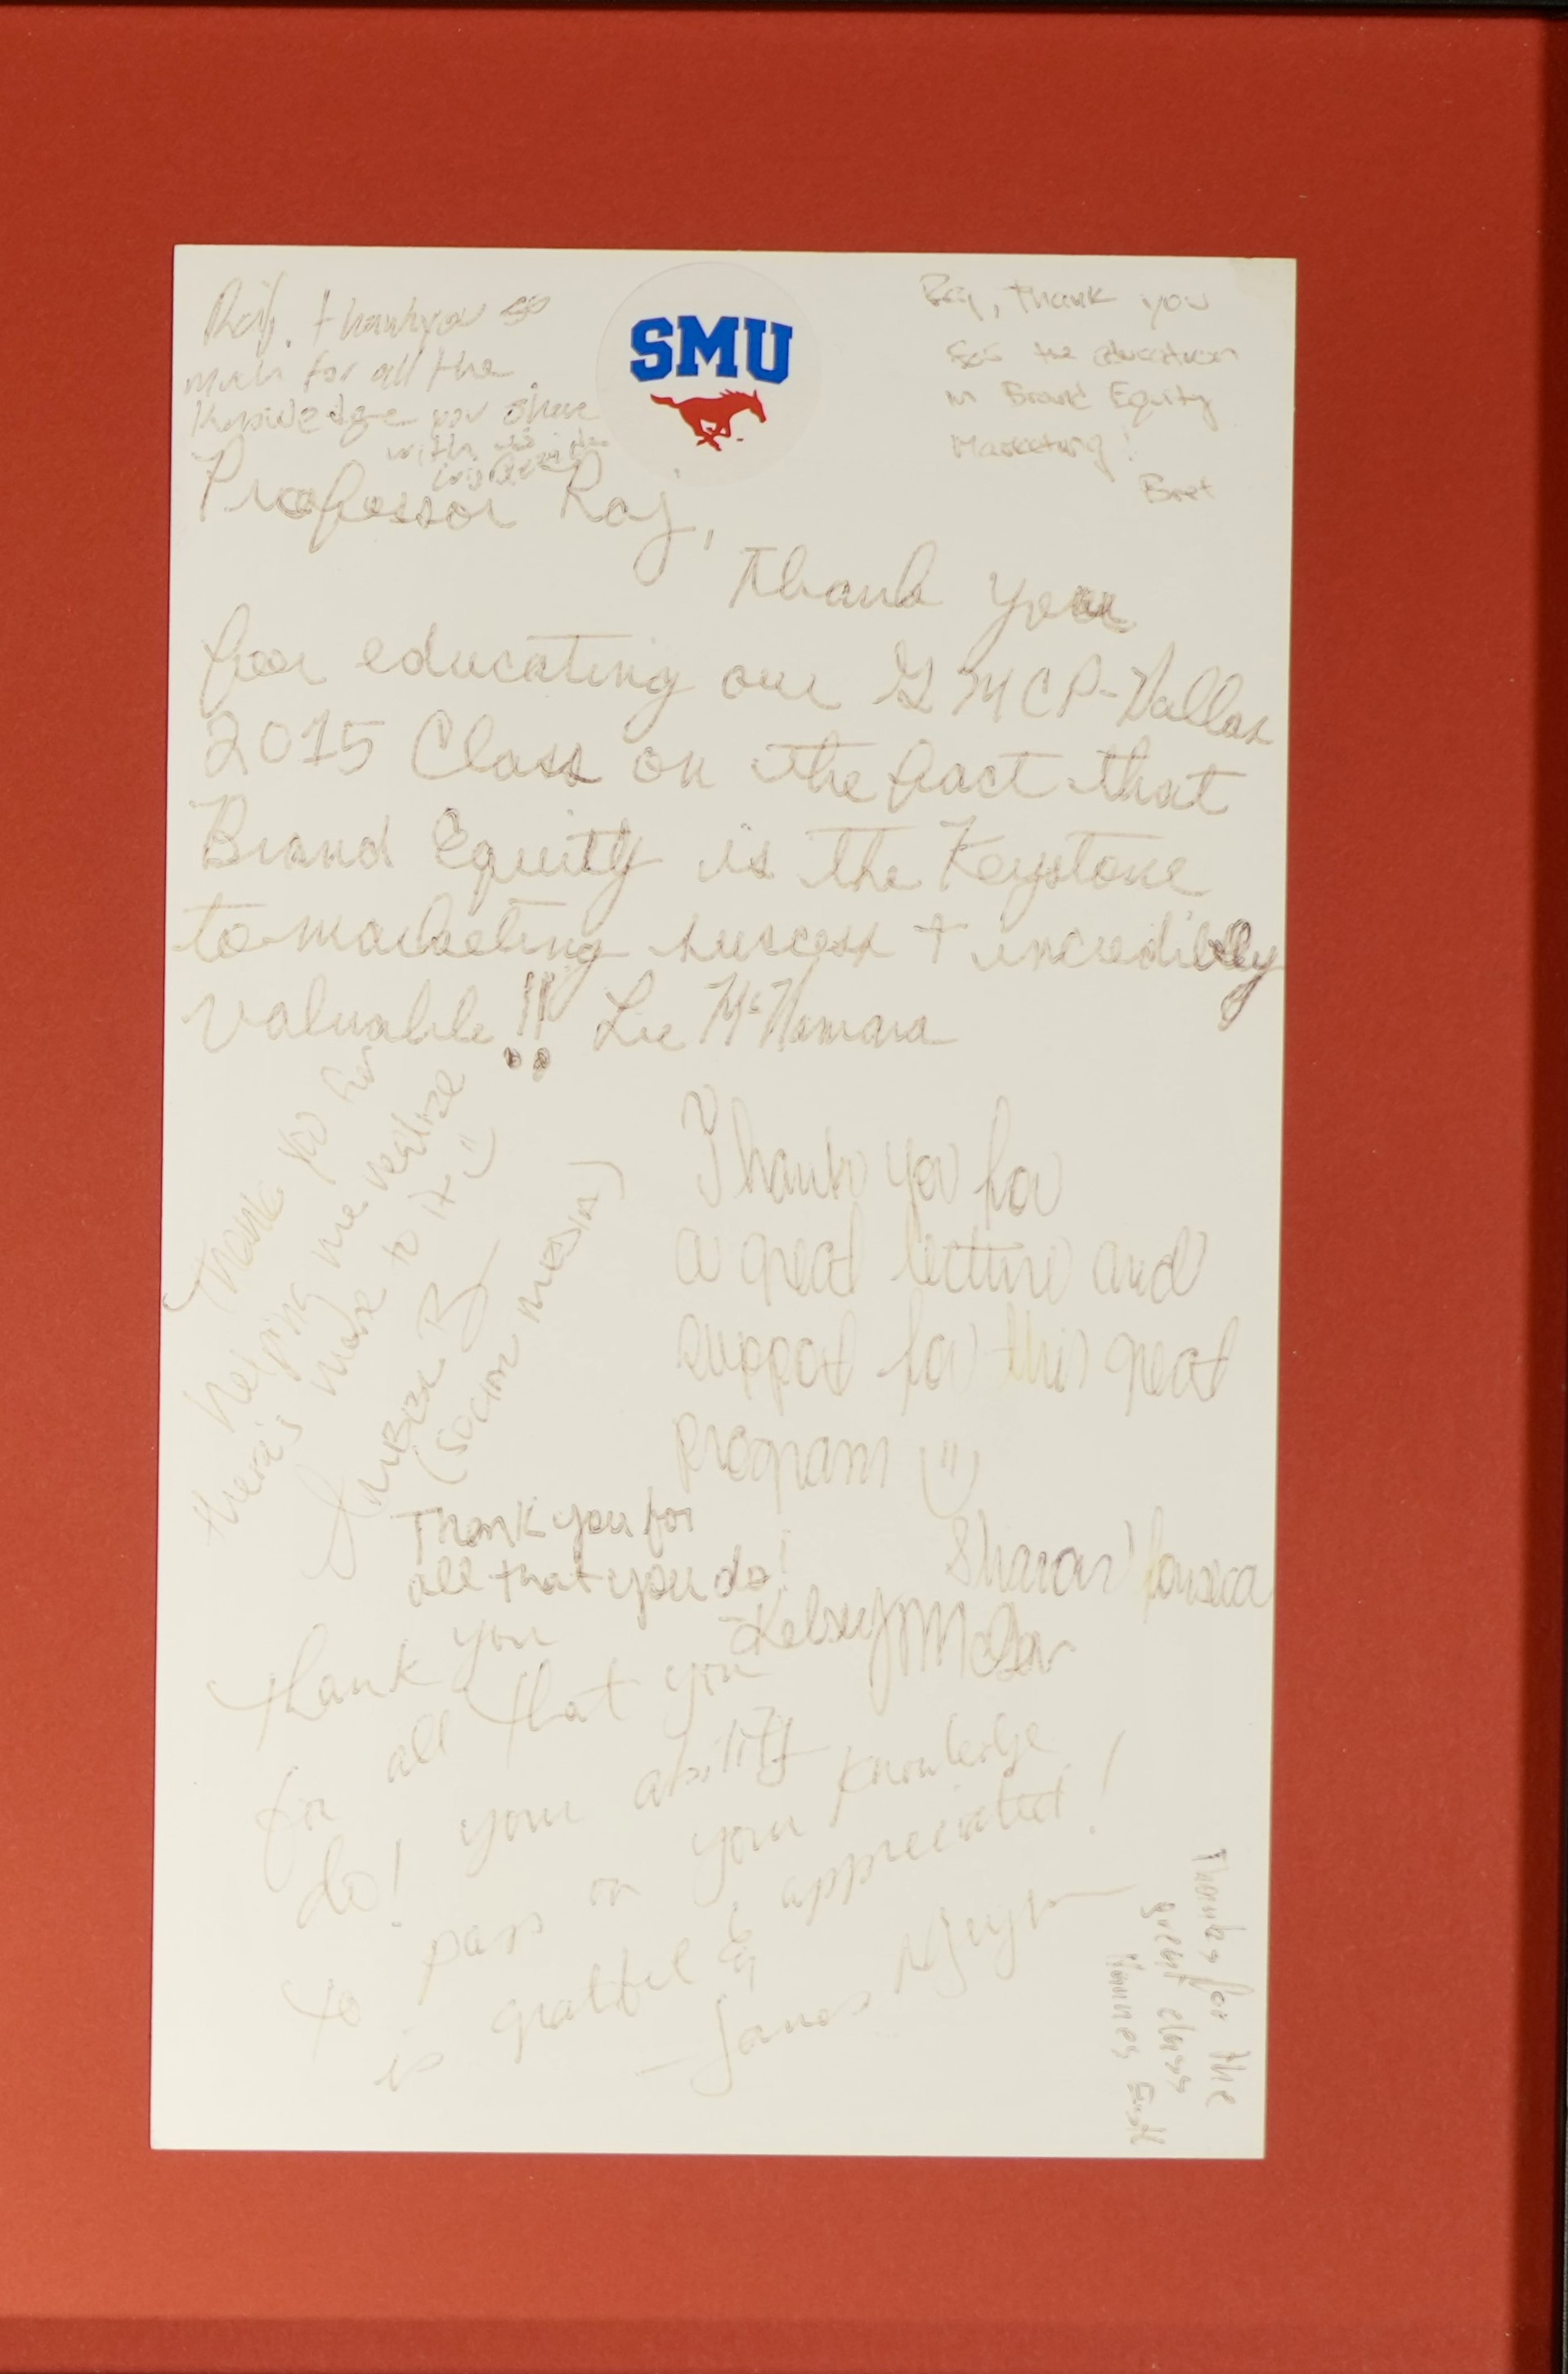 Raj, thankyou so
much for all the
Knowledge you share
with us
SMU
Raj, Thank you
for the education
in Brand Equity
Marketing!
Bret
Professor Raj,
Thank you
for educating our GMCP-Dallas
2015 Class on the fact that
Brand Equity is the Keystone
to marketing success + incredibly
valuable!! McNamara
Thank you for
helping me realize
there's more to it :)
Amber B
(SOCIAL MEDIA)
Thank you for
a great lecture and
support for this great
program :)
Sharon Fonseca
Thank you for
all that you do!
Kelsey
Thank you
for all that you
do! your ability
to pass on your knowledge
is grateful & appreciated!
- Nguyen
Thanks for the
great class
Hannes